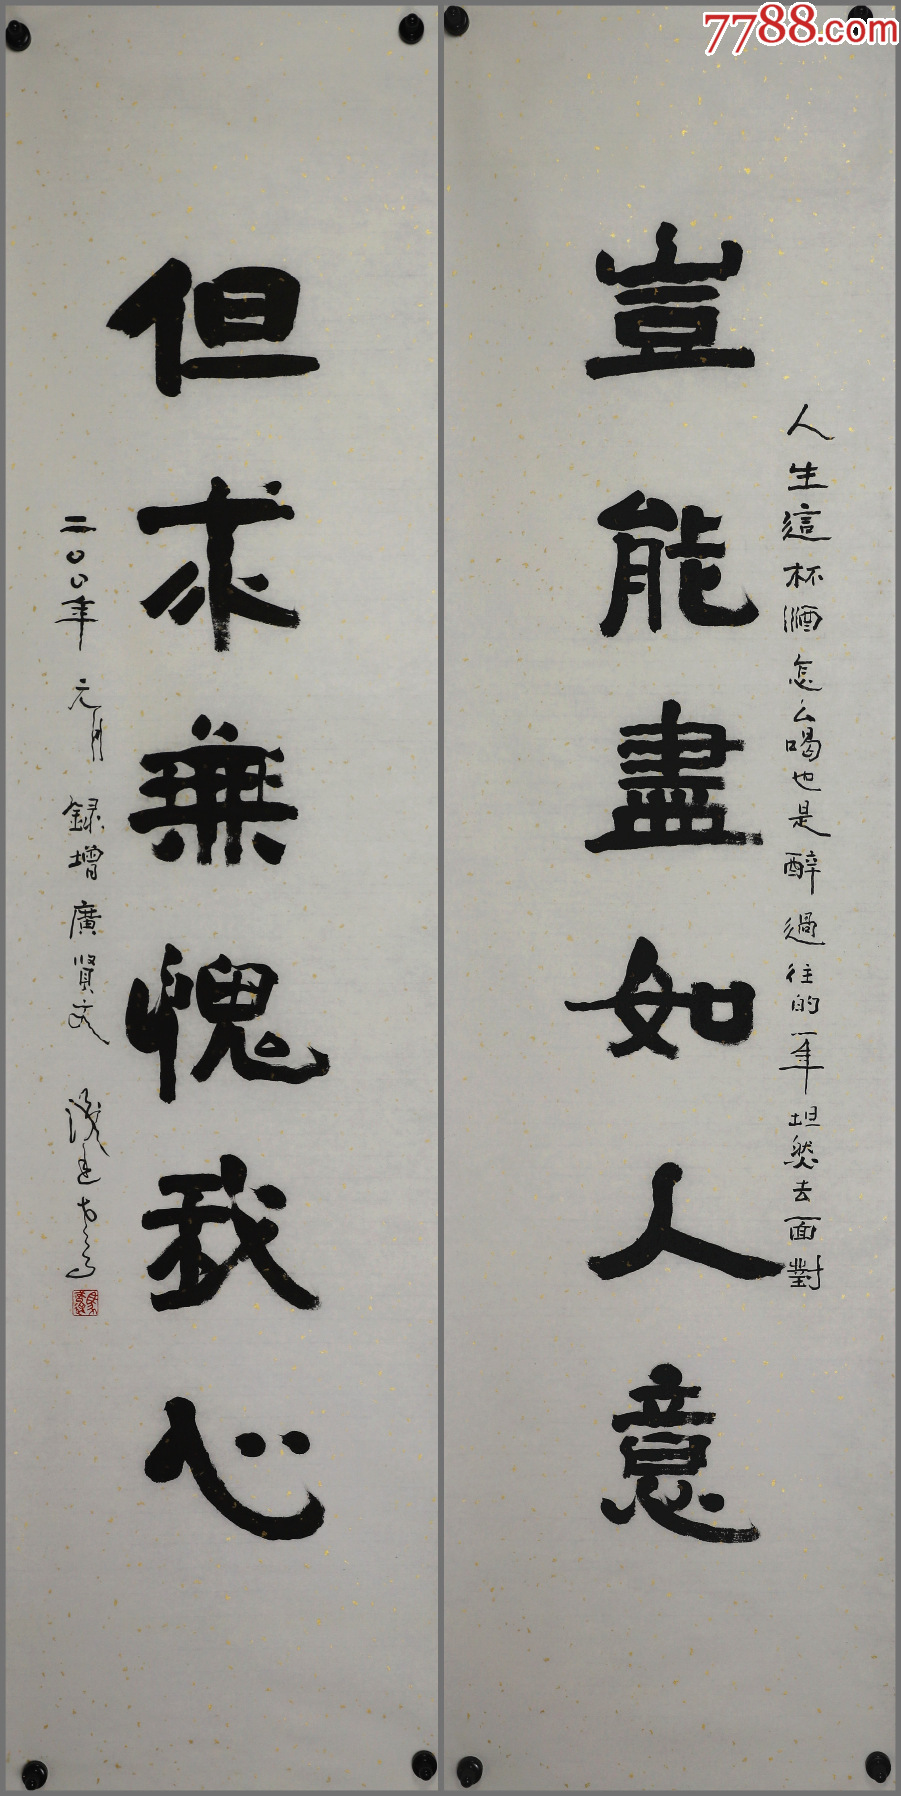 人生這杯酒怎么喝也是醉過往的一年坦然去面對
豈能盡如人意
但求無愧我心
二〇〇年元月錄增廣賢文
7788.com